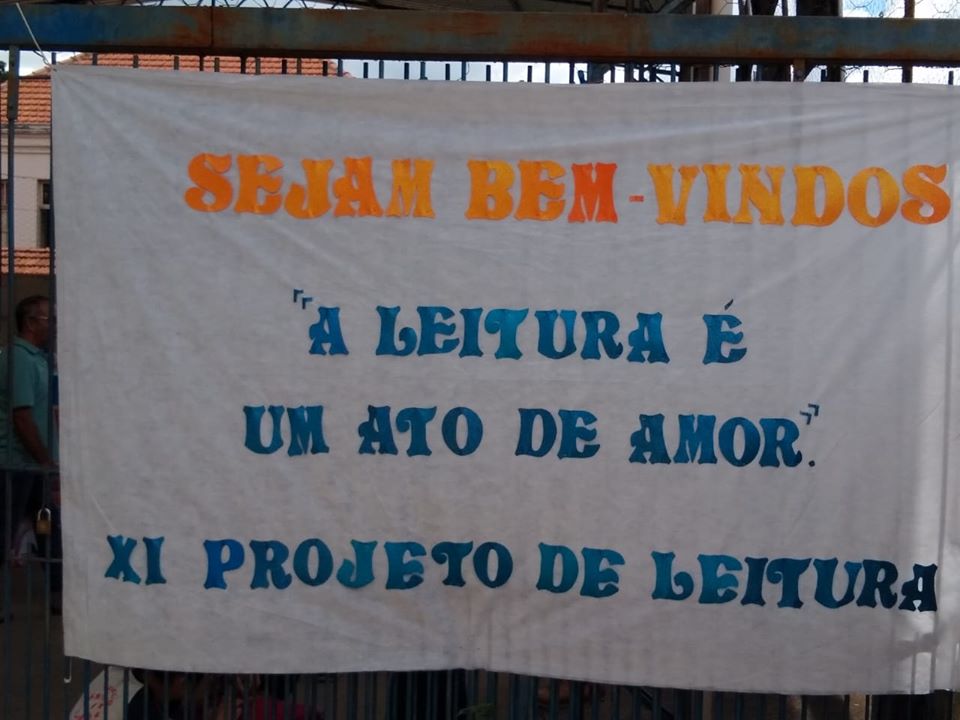 SEJAM BEM-VINDOS
"A LEITURA É
UM ATO DE AMOR".
XI PROJETO DE LEITURA